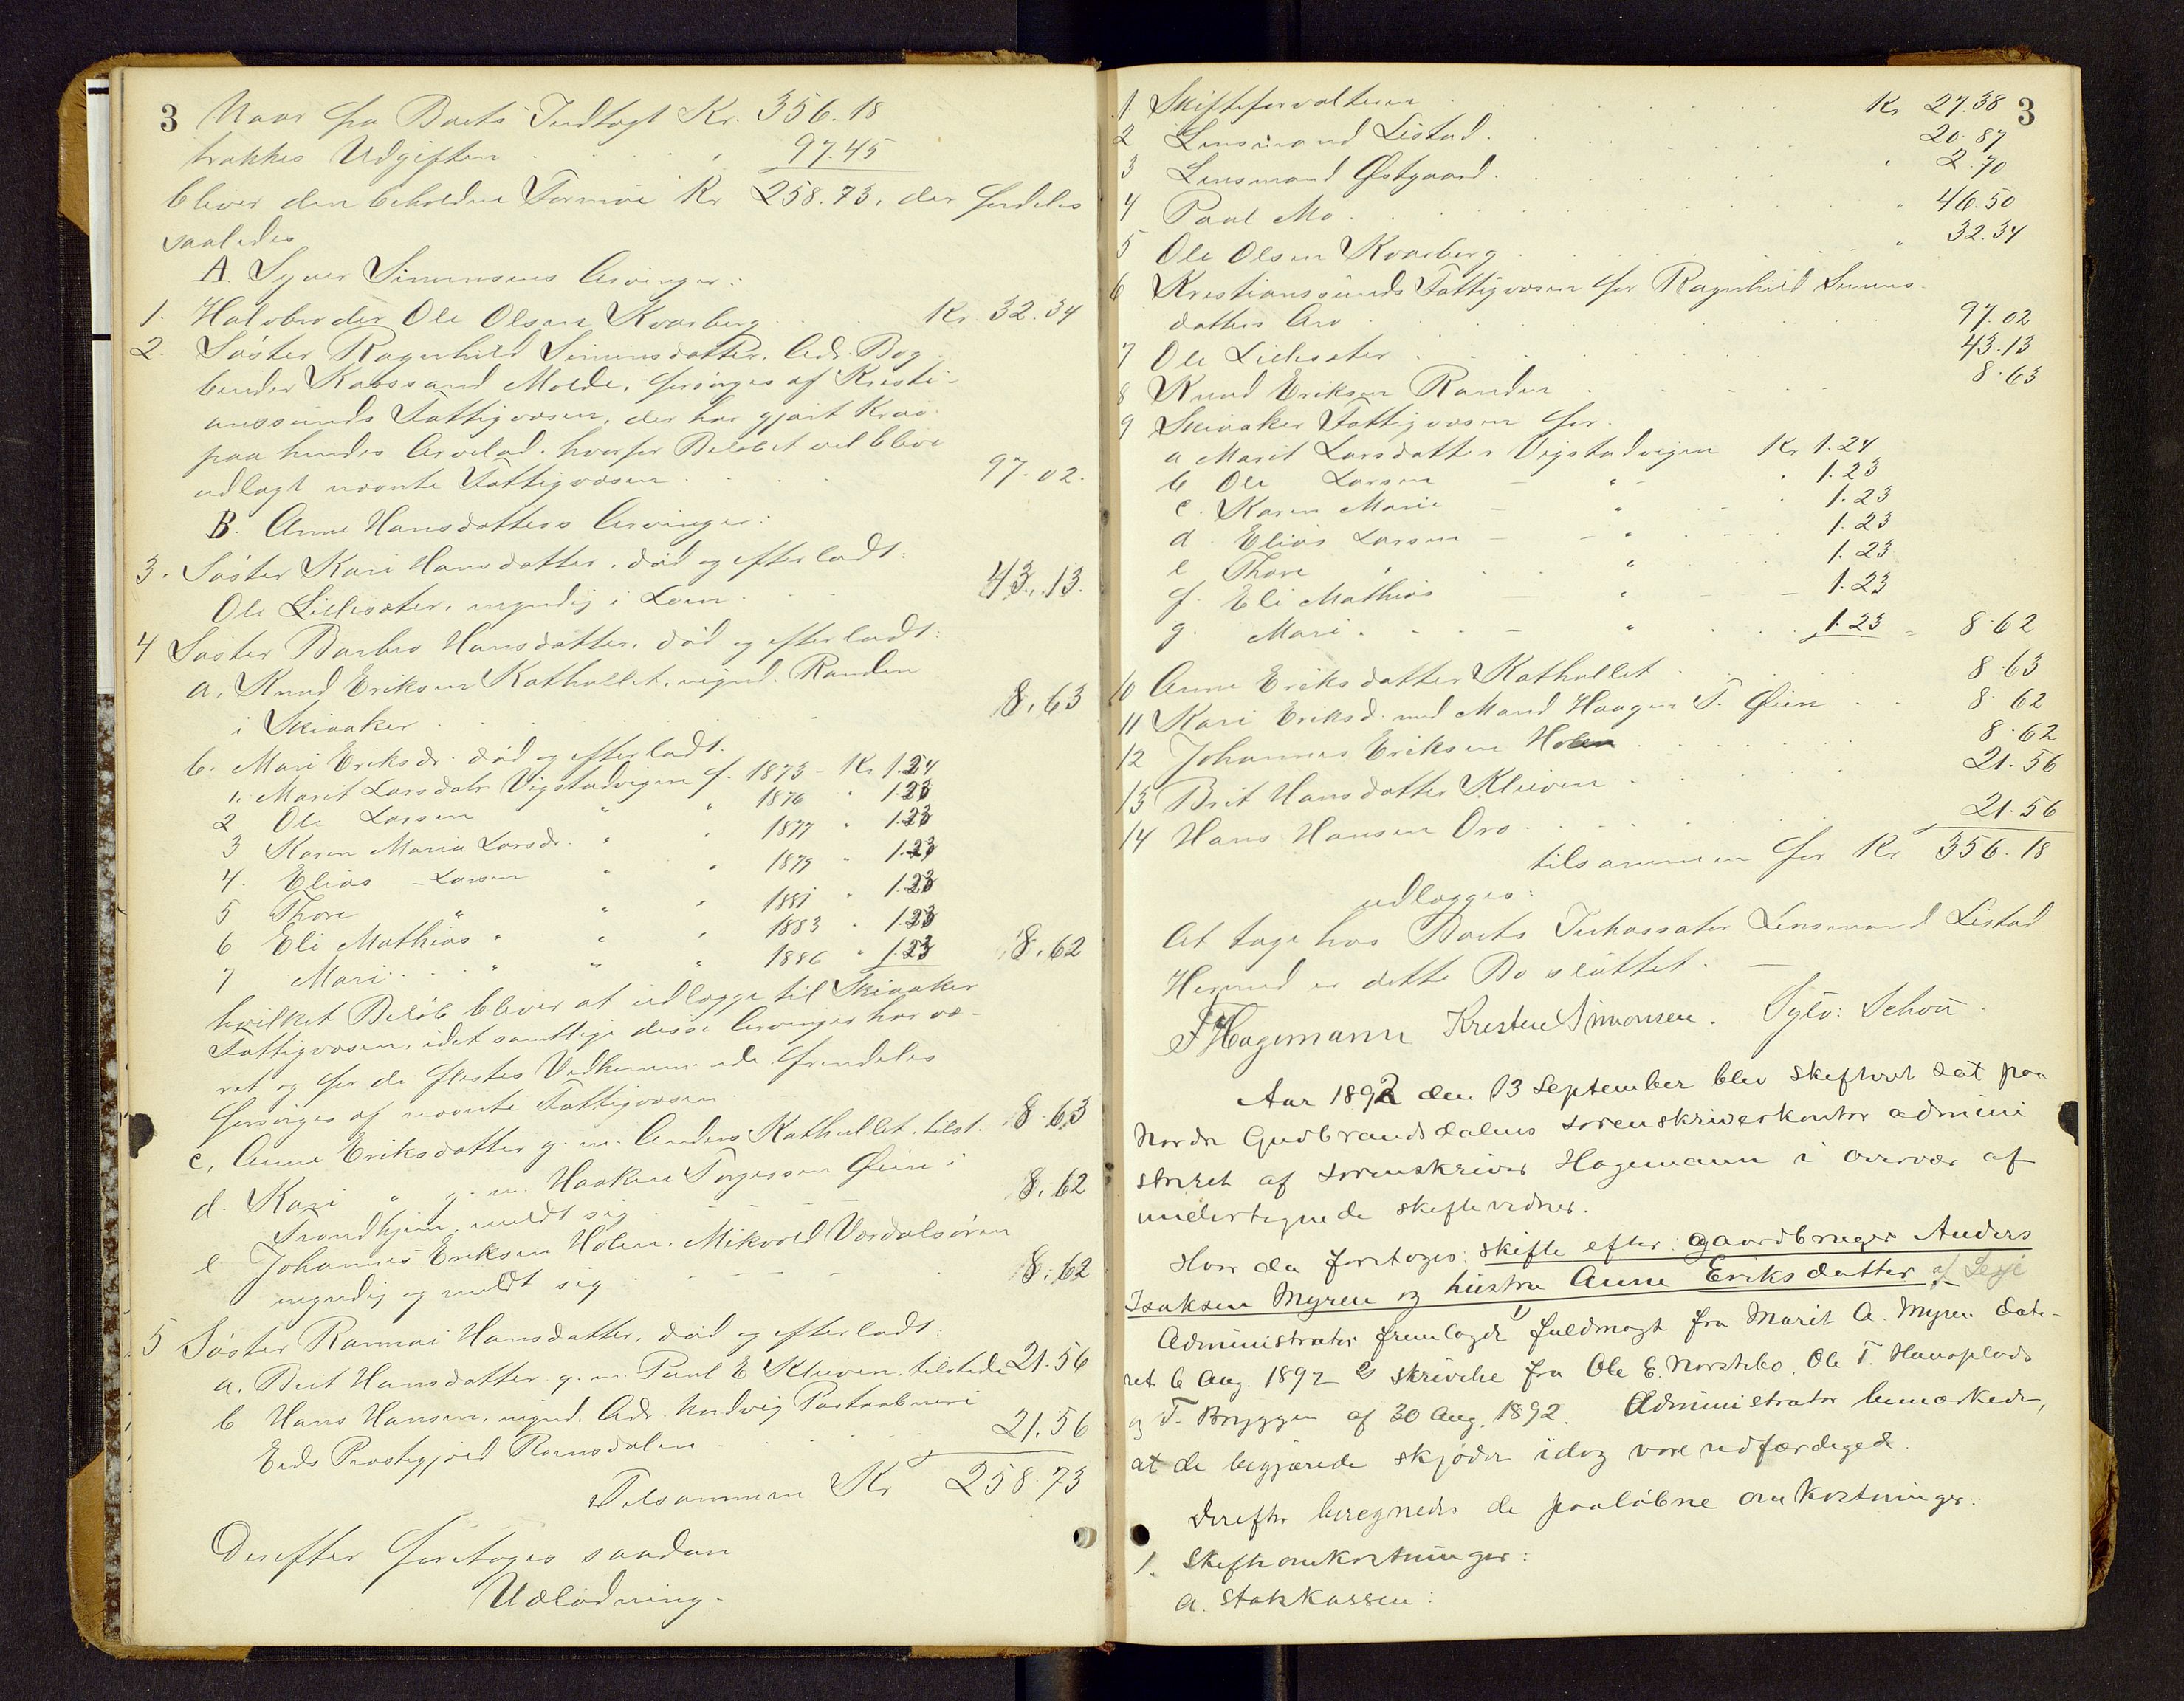 3 Naar fra Boets Indtægt Kr. 356.18
trækkes Udgiften . . . . " 97.45
bliver den beholdne Formue Kr 258.73, der fordeles
saaledes
A. Syver Simensens Arvinger:
1. Halvbroder Ole Olsen Kvarberg . . Kr 32.34
2. Søster Ragnhild Simensdatter, Adr. Bog-
binder Molde, forsørges af Kristi-
anssunds Fattigvæsen, der har gjort Krav
paa hendes Arvelod, hvorfor Beløbet vil blive
udlagt nævnte Fattigvæsen . . . . 97.02.
B. Anne Hansdatters Arvinger:
3. Søster Kari Hansdatter, død og efterladt:
Ole Lillesæter, myndig i Lom . . . 43.13.
4 Søster Barbro Hansdatter, død og efterladt:
a. Knud Eriksen Kathullet, mynd. Randen
i Skiaaker . . . . 8.63
b. Mari Eriksdr. død og efterladt.
1. Marit Larsdatr Vigstadvigen f. 1873 - Kr 1.24
2. Ole Larsen " " 1876 " 1.23
3 Karen Maria Larsdr. " " 1877 " 1.23
4. Elias - Larsen " " 1879 " 1.23
5 Thore " " " 1881 " 1.23
6 Eli Mathias " " " 1883 " 1.23
7 Mari . . " " " 1886 " 1.23 8.62
hvilket Beløb bliver at udlægge til Skiaaker
Fattigvæsen, idet samtlige disse Arvinger har væ-
ret og for de flestes Vedkommende fremdeles
forsørges af nævnte Fattigvæsen.
c, Anne Eriksdatter g. m. Anders Kathullet, tilst. 8.63
d. Kari " g. m. Haaken Torgersen Øien i
Trondhjem, meldt sig . . . 8.62
e Johannes Eriksen Holen, Mikvold Værdalsøren
myndig og meldt sig . . . 8.62
5 Søster Rannei Hansdatter, død og efterladt:
a. Brit Hansdatter g. m. Paul E Kleiven, tilstede 21.56
b Hans Hansen, mynd. Adr. Nordvig Postaabneri
Eids Præstegjeld Romsdalen . . . 21.56
Tilsammen Kr 258.73
Derefter foretoges saadan
Udlodning.
3
1. Skifteforvalteren . . . . Kr 27.38
2 Lensmand Listad . . . . 20.87
3 Lensmand Østgaard . . . . " 2.70
4 Paul Mo . . . . " 46.50
5 Ole Olsen Kvarberg . . . . " 32.34
6 Kristianssunds Fattigvæsen for Ragnhild Simens-
datters Arv . . . . 97.02
7 Ole Lillesæter . . . . 43.13
8 Knud Eriksen Randen . . . . 8.63
9 Skiaaker Fattigvæsen for
a Marit Larsdatter Vigstadvigen Kr 1.24
b Ole Larsen - " - " 1.23
c. Karen Marie - " . 1.23
d. Elias Larsen - - " . 1.23
e Thore " . . " 1.23
f. Eli Mathias - " - 1.23
g. Mari . . - " . . 1.23 = 8.62
10 Anne Eriksdatter Kathullet . . . 8.63
11 Kari Eriksd. med Mand Haagen T. Øien . . 8.62
12 Johannes Eriksen Holen . . . 8.62
13 Brit Hansdatter Kleiven . . . 21.56
14 Hans Hansen Oro . . . . 21.56
tilsammen for Kr 356.18
udlægges:
At tage hos Boets Inkassator Lensmand Listad
Hermed er dette Bo sluttet. —
F Hagemann Kristen Simonsen. Sylv: Schou.
Aar 1892 den 13 September blev skifteret sat paa
Nordre Gudbrandsdalens sorenskriverkontor admini
streret af sorenskriver Hagemann i overvær af
undertegnede skiftevidner.
Hvor da foretoges: skifte efter gaardbruger Anders
Isaksen Myren og hustru Anne Eriksdatter af Lesje
Administrator fremlagde 1) fuldmagt fra Marit A. Myren date-
ret 6 Aug. 1892 2) skrivelse fra Ole E. Norstebo, Ole T. Haugplads
og T. Bryggen af 30 Aug. 1892. Administrator bemærkede,
at de begjærede skjøder idag vare udfærdigede.
Derefter beregnedes de paaløbne omkostninger.
1. Skifteomkostninger:
a. Statskassen: